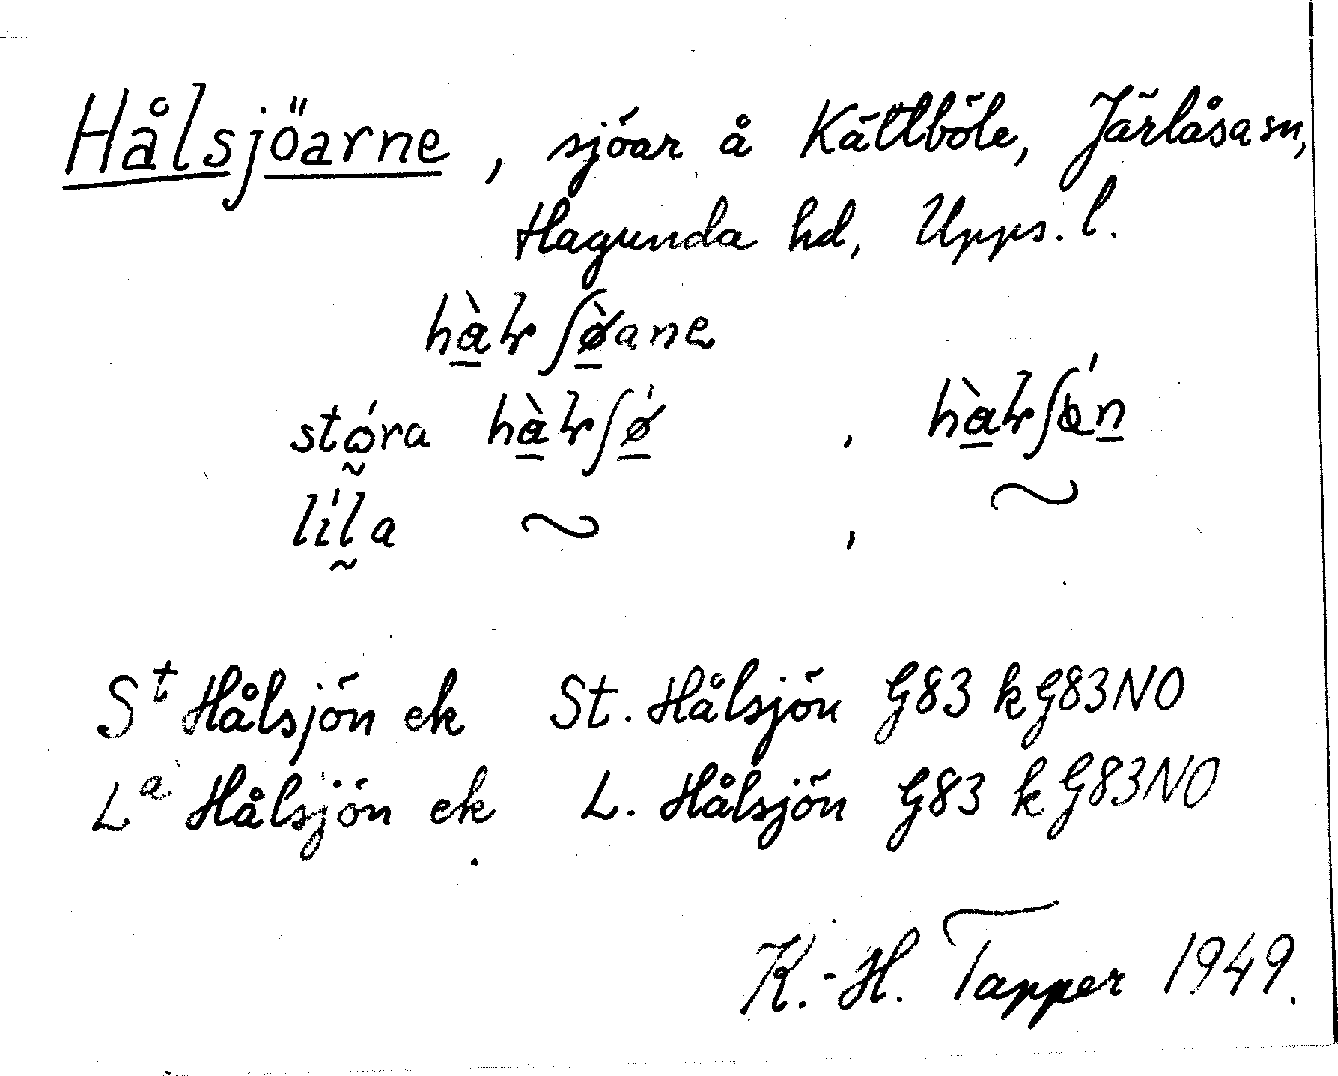 Hålsjöarne, sjöar å Kättböle, Järlåsa sn,
Hagunda hd, Upps. l.
stóra
líla ~ , ~
St Hålsjön ek St. Hålsjön G83 k G83NO
La Hålsjön ek L. Hålsjön G83 k G83NO
K.-H. Tapper 1949.